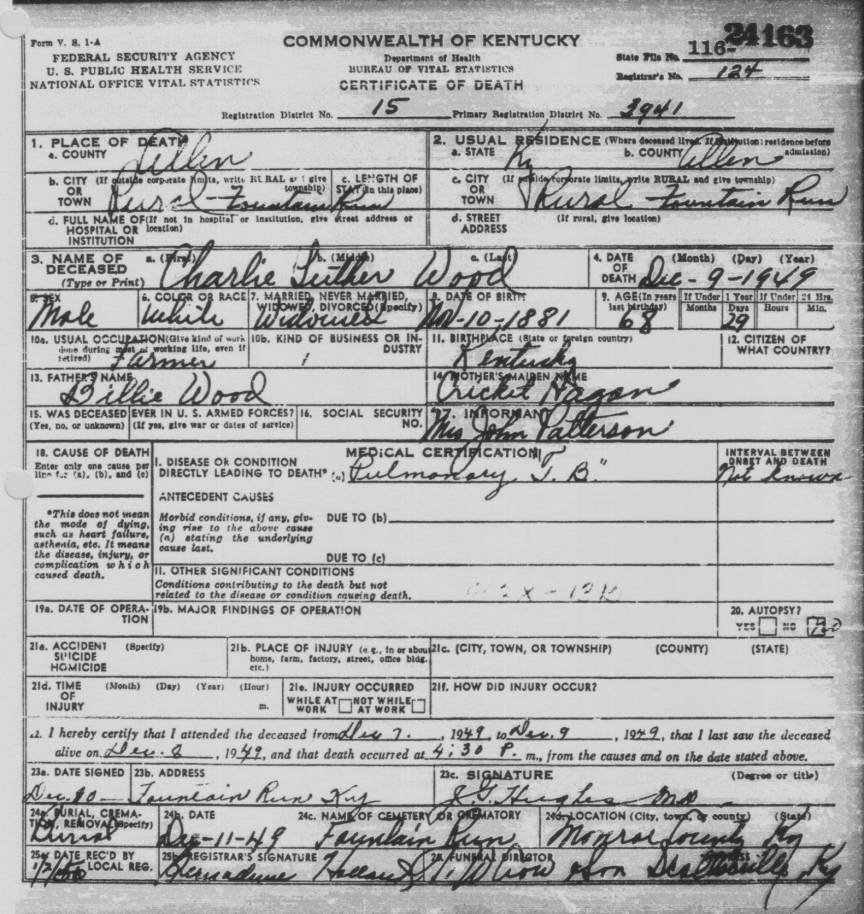 Form V. S. 1-A
FEDERAL SECURITY AGENCY
U. S. PUBLIC HEALTH SERVICE
NATIONAL OFFICE VITAL STATISTICS
COMMONWEALTH OF KENTUCKY
Department of Health
BUREAU OF VITAL STATISTICS
CERTIFICATE OF DEATH
State File No. 116- 24163
Registrar's No. 124
Registration District No. 15 Primary Registration District No. 3941
1. PLACE OF DEATH
a. COUNTY Allen
2. USUAL RESIDENCE (Where deceased lived. If institution: residence before admission)
a. STATE Ky b. COUNTY Allen
b. CITY OR TOWN (If outside corporate limits, write RURAL and give township) Rural Fountain Run
c. LENGTH OF STAY (in this place)
c. CITY OR TOWN (If outside corporate limits, write RURAL and give township) Rural Fountain Run
d. FULL NAME OF HOSPITAL OR INSTITUTION (If not in hospital or institution, give street address or location)
d. STREET ADDRESS (If rural, give location)
3. NAME OF DECEASED (Type or Print) a. (First) b. (Middle) c. (Last)
Charlie Luther Wood
4. DATE OF DEATH (Month) (Day) (Year) Dec-9-1949
5. SEX Male
6. COLOR OR RACE White
7. MARRIED, NEVER MARRIED, WIDOWED, DIVORCED (Specify) Widowed
8. DATE OF BIRTH Nov-10-1881
9. AGE (In years last birthday) 68
If Under 1 Year Months Days 29
If Under 24 Hrs. Hours Min.
10a. USUAL OCCUPATION (Give kind of work done during most of working life, even if retired) Farmer
10b. KIND OF BUSINESS OR INDUSTRY
11. BIRTHPLACE (State or foreign country) Kentucky
12. CITIZEN OF WHAT COUNTRY?
13. FATHER'S NAME Billie Wood
14. MOTHER'S MAIDEN NAME Cricket Hagan
15. WAS DECEASED EVER IN U. S. ARMED FORCES? (Yes, no, or unknown) (If yes, give war or dates of service)
16. SOCIAL SECURITY NO.
17. INFORMANT Mrs John Patterson
18. CAUSE OF DEATH
Enter only one cause per line for (a), (b), and (c)
*This does not mean the mode of dying, such as heart failure, asthenia, etc. It means the disease, injury, or complication which caused death.
MEDICAL CERTIFICATION
I. DISEASE OR CONDITION DIRECTLY LEADING TO DEATH* (a) Pulmonary "T. B."
INTERVAL BETWEEN ONSET AND DEATH
Not known
ANTECEDENT CAUSES
Morbid conditions, if any, giving rise to the above cause (a) stating the underlying cause last.
DUE TO (b)
DUE TO (c)
II. OTHER SIGNIFICANT CONDITIONS
Conditions contributing to the death but not related to the disease or condition causing death.
19a. DATE OF OPERATION
19b. MAJOR FINDINGS OF OPERATION
20. AUTOPSY?
YES NO no
21a. ACCIDENT SUICIDE HOMICIDE (Specify)
21b. PLACE OF INJURY (e.g., in or about home, farm, factory, street, office bldg., etc.)
21c. (CITY, TOWN, OR TOWNSHIP) (COUNTY) (STATE)
21d. TIME OF INJURY (Month) (Day) (Year) (Hour) m.
21e. INJURY OCCURRED
WHILE AT WORK NOT WHILE AT WORK
21f. HOW DID INJURY OCCUR?
22. I hereby certify that I attended the deceased from Dec 7, 1949, to Dec. 9, 1949, that I last saw the deceased
alive on Dec. 8, 1949, and that death occurred at 4:30 P. m., from the causes and on the date stated above.
23a. DATE SIGNED Dec. 10
23b. ADDRESS Fountain Run Ky
23c. SIGNATURE (Degree or title) J. G. Hughes MD
24a. BURIAL, CREMATION, REMOVAL (Specify) Burial
24b. DATE Dec-11-49
24c. NAME OF CEMETERY OR CREMATORY Fountain Run
24d. LOCATION (City, town, or county) (State) Monroe County Ky
25a. DATE REC'D BY LOCAL REG.
25b. REGISTRAR'S SIGNATURE
26. FUNERAL DIRECTOR ADDRESS
T. W. Crow & Son Scottsville, Ky